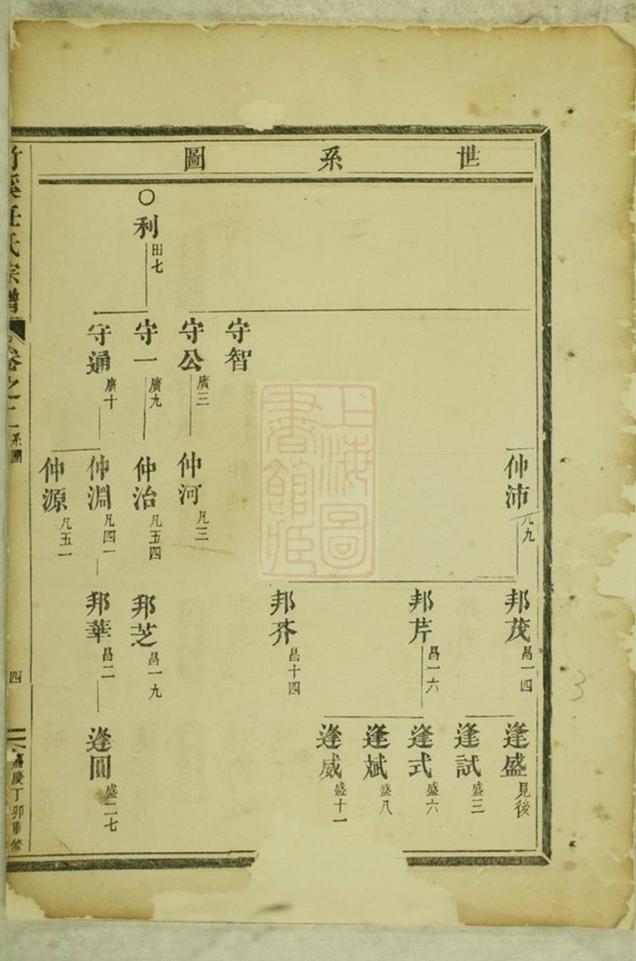 世系圖
仲沛 凡九
邦茂 昌一四
逢盛 見後
逢試 盛三
邦芹 昌一六
逢式 盛六
逢斌 盛八
逢威 盛十一
邦芥 昌十四
○利 田七
守智
守公 廣三
仲河 凡三
守一 廣九
仲治 凡五四
邦芝 昌一九
守通 廣十
仲淵 凡四一
邦華 昌二
逢圓 盛二七
仲源 凡五一
竹溪任氏宗譜 卷之二 系圖 四 嘉慶丁卯重修
上海圖書館藏
3